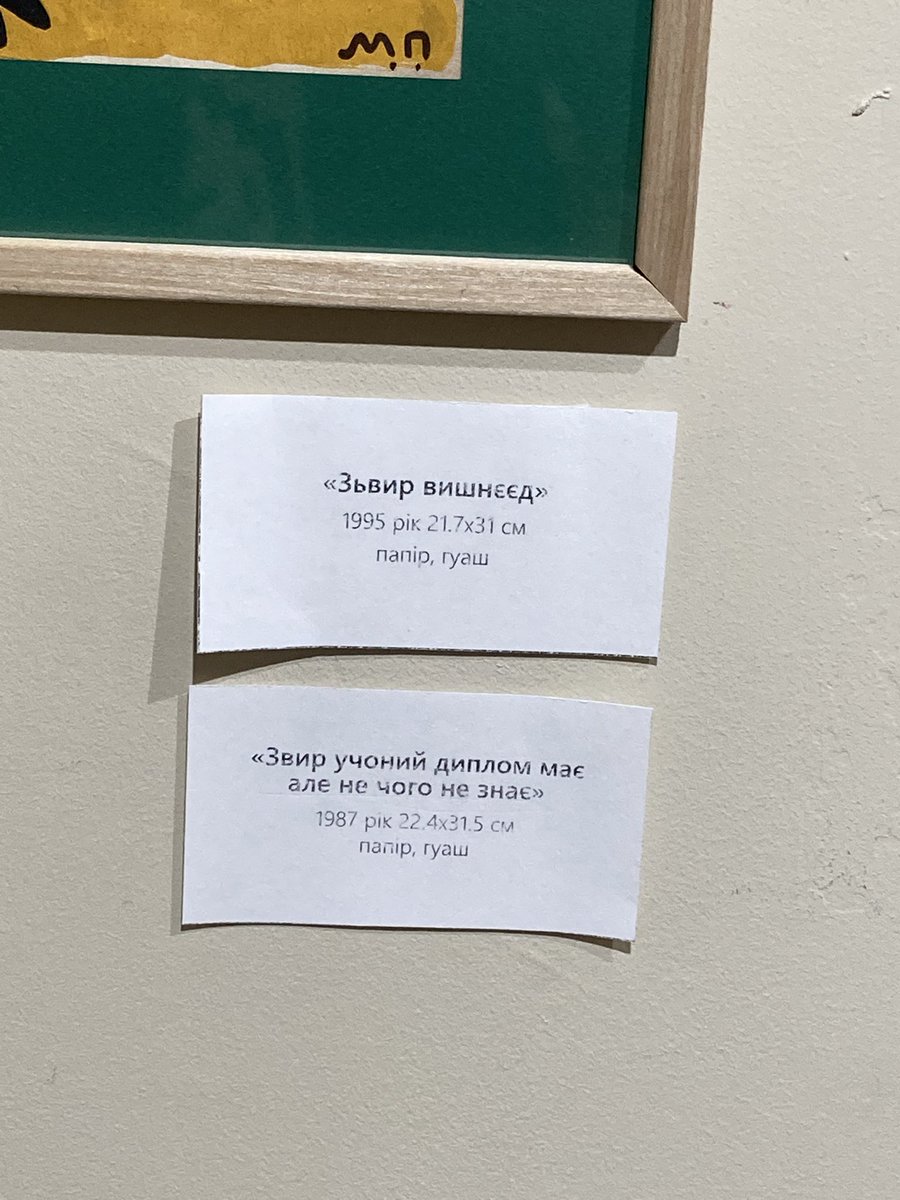 М.П.
«Зьвир вишнєєд»
1995 рік 21.7х31 см
папір, гуаш
«Звир учоний диплом має
але не чого не знає»
1987 рік 22.4х31.5 см
папір, гуаш